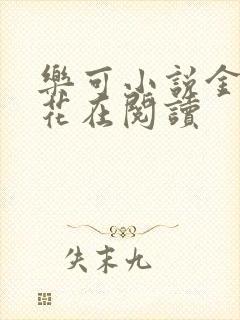 樂可小説金
花在閱讀
失末九